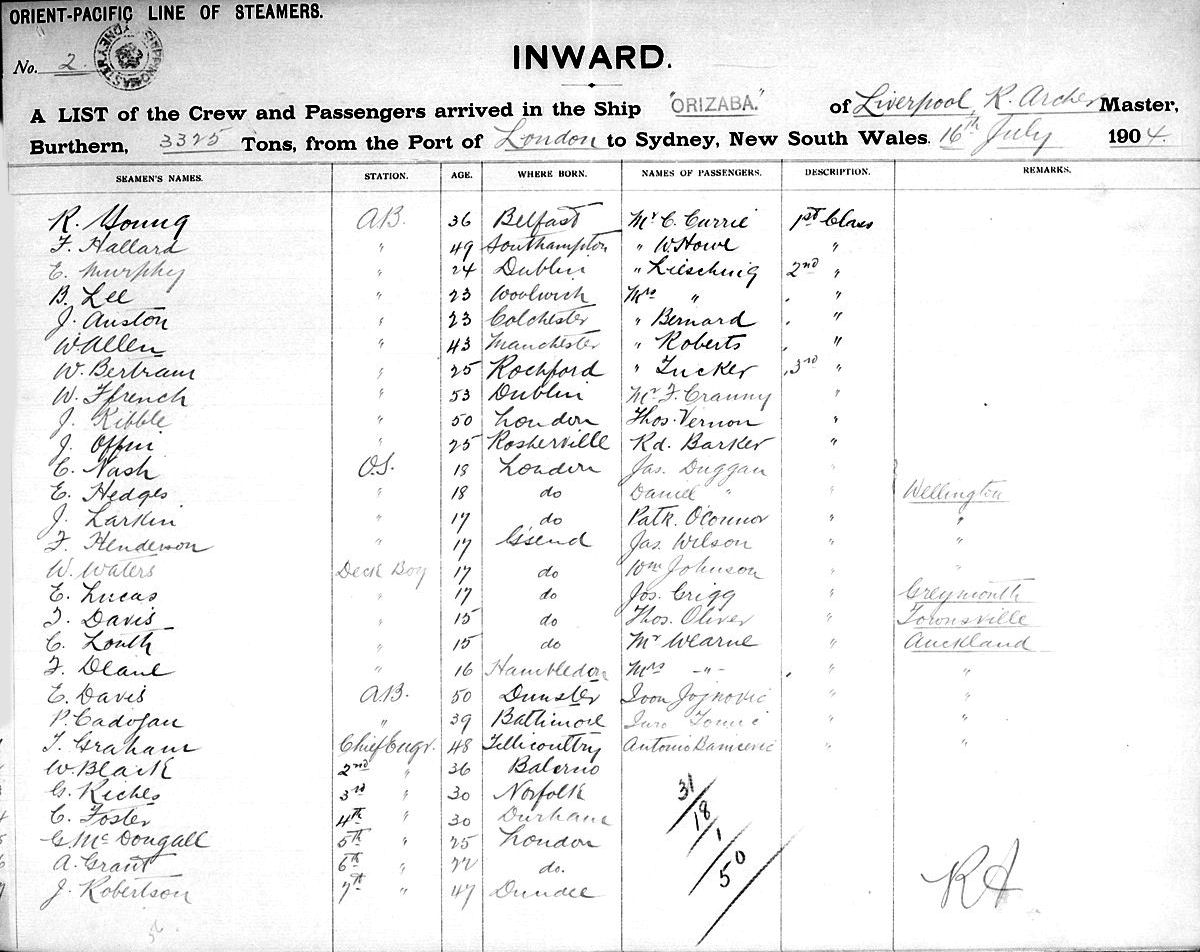 ORIENT-PACIFIC LINE OF STEAMERS.
No. 2.
INWARD.
A LIST of the Crew and Passengers arrived in the Ship "ORIZABA." of Liverpool, R. Archer Master,
Burthern, 3325 Tons, from the Port of London to Sydney, New South Wales. 16th July 1904.
SEAMEN'S NAMES. STATION. AGE. WHERE BORN. NAMES OF PASSENGERS. DESCRIPTION. REMARKS.
R. Young A.B. 36 Belfast Mr C. Currie 1st Class
F. Hallard " 49 Southampton " W. Howe "
E. Murphy " 24 Dublin " Lieschnig 2nd "
B. Lee " 23 Woolwich Mrs " "
J. Auston " 23 Colchester " Bernard "
W Allen " 43 Manchester " Roberts "
W. Bertram " 25 Rochford " Tucker 3rd "
W. Ffrench " 53 Dublin Mr F. Cranny "
J. Kibble " 50 London Thos. Vernon "
J. Offin " 25 Rosherville Rd. Barker "
C. Nash O.S. 18 London Jas. Duggan "
E. Hedges " 18 do Daniel " " Wellington
J. Larkin " 17 do Patk. O'Connor " "
F. Henderson " 17 G'send Jas. Wilson " "
W. Waters Deck Boy 17 do Wm Johnson " "
E. Lucas " 17 do Jos. Grigg " Greymouth
F. Davis " 15 do Thos. Oliver " Townsville
C. Louth " 15 do Mr Wearne " Auckland
F. Deane " 16 Hambledon Mrs -"- " "
E. Davis A.B. 50 Dunster Ivon Jojnovic " "
P. Cadogan " 39 Baltimore Tomic " "
T. Graham Chief Engr. 48 Tillicoultry Antonio " "
W. Black 2nd " 36 Balerno
G. Riches 3rd " 30 Norfolk
C. Foster 4th " 30 Durham
G. McDougall 5th " 25 London
A. Grant 6th " 22 do.
J. Robertson 7th " 47 Dundee
31
18
1
50
RA